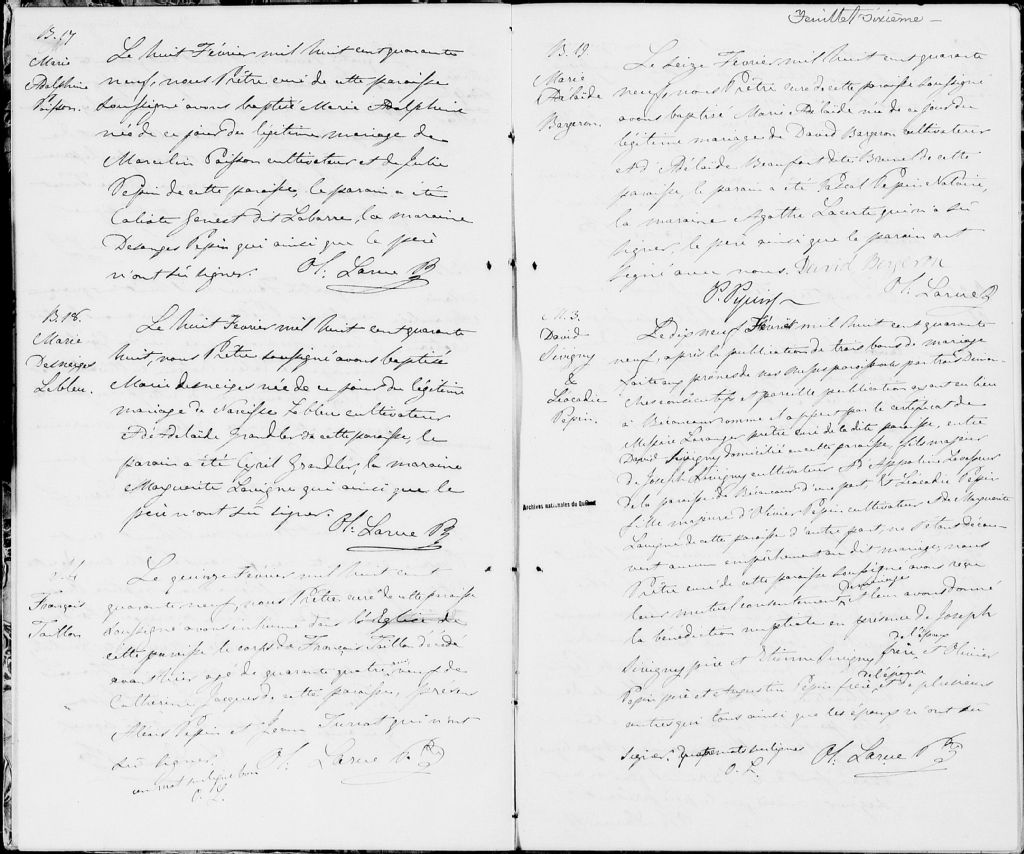 B. 17
Marie
Adelphine
Poisson.
Le huit Février mil huit cent quarante
neuf, nous Prêtre curé de cette paroisse
soussigné avons baptisé Marie Adelphine
née de ce jour du légitime mariage de
Marcelin Poisson cultivateur et de Julie
Pepin de cette paroisse, le parain a été
Calixte Genest dit Labarre, la maraine
Desanges Pepin qui ainsi que le père
n'ont sû signer. Ol: Larue P
B. 18.
Marie
Desneiges
Lebleu.
Le huit Février mil huit cent quarante
huit, nous Prêtre soussigné avons baptisé
Marie desneiges née de ce jour du légitime
mariage de Narcisse Lebleu cultivateur
et de Adelaïde Grandler de cette paroisse, le
parain a été Cyril Grandler, la maraine
Marguerite Lavigne qui ainsi que le
père n'ont sû signer. Ol: Larue P
François
Taillon
Le quinze Février mil huit cent
quarante neuf, nous Prêtre curé de cette paroisse
soussigné avons inhumé dans l'Eglise de
cette paroisse le corps de François Taillon décédé
avant hier agé de quarante quatre ans veuf de
Catherine Jacques de cette paroisse, présens
Alexis Pepin et Jean Turcot qui n'ont
sû signer. Ol. Larue P
un mot en ligne bon
O. L.
Feuillet Sixième —
B. 19
Marie
Adélaide
Bergeron.
Le Seize Février mil huit cent quarante
neuf, nous Prêtre curé de cette paroisse soussigné
avons baptisé Marie Adélaide née de ce jour du
légitime mariage de David Bergeron cultivateur
et d'Adélaide Beaufort dite Brunel de cette
paroisse, le parain a été Pascal Pepin Notaire,
la maraine Agathe Lacerte qui n'a sû
signer, le père ainsi que le parain ont
signé avec nous. David Bergeron
P. Pepin Ol. Larue P
M. 3.
David
Sévigny
&
Léocadie
Pepin.
Le dix neuf Février mil huit cent quarante
neuf, après la publication de trois bans de mariage
faite aux prônes de nos messes paroissiales par trois Diman-
ches consécutifs et pareille publication ayant eu lieu
à Bécancour comme il appert par le certificat de
Messire Leranger prêtre curé de la dite paroisse, entre
David Sévigny domicilié en cette paroisse, fils majeur
de Joseph Sévigny cultivateur et d'Appoline Levasseur
de la paroisse de Bécancour d'une part, et Léocadie Pepin
fille majeure d'Olivier Pepin cultivateur et de Marguerite
Lavigne de cette paroisse d'autre part, ne s'étant décou-
vert aucun empêchement au dit mariage, nous
Prêtre curé de cette paroisse soussigné avons reçu
leur mutuel consentement de mariage et leur avons donné
la bénédiction nuptiale en présence de Joseph
Sévigny père et Etienne Sévigny frère de l'époux et Olivier
Pepin père et Augustin Pepin frère de l'épouse et de plusieurs
autres qui tous ainsi que les époux n'ont su
signer. Quatre mots en lignes Ol. Larue P
O. L.
Archives nationales du Québec